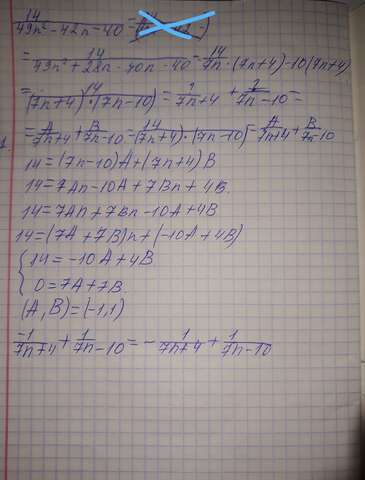 14/(49n²-42n-40) =
= 14/(49n²+28n-70n-40) = 14/(7n·(7n+4)-10(7n+4))
= 14/((7n+4)·(7n-10)) = ?/(7n+4) + ?/(7n-10) =
= A/(7n+4) + B/(7n-10) = 14/((7n+4)·(7n-10)) = A/(7n+4) + B/(7n-10)
14=(7n-10)A+(7n+4)B
14=7An-10A+7Bn+4B.
14=7An+7Bn-10A+4B
14=(7A+7B)n+(-10A+4B)
{14=-10A+4B
0=7A+7B.
(A,B)=(-1,1)
-1/(7n+4) + 1/(7n-10) = -1/(7n+4) + 1/(7n-10)